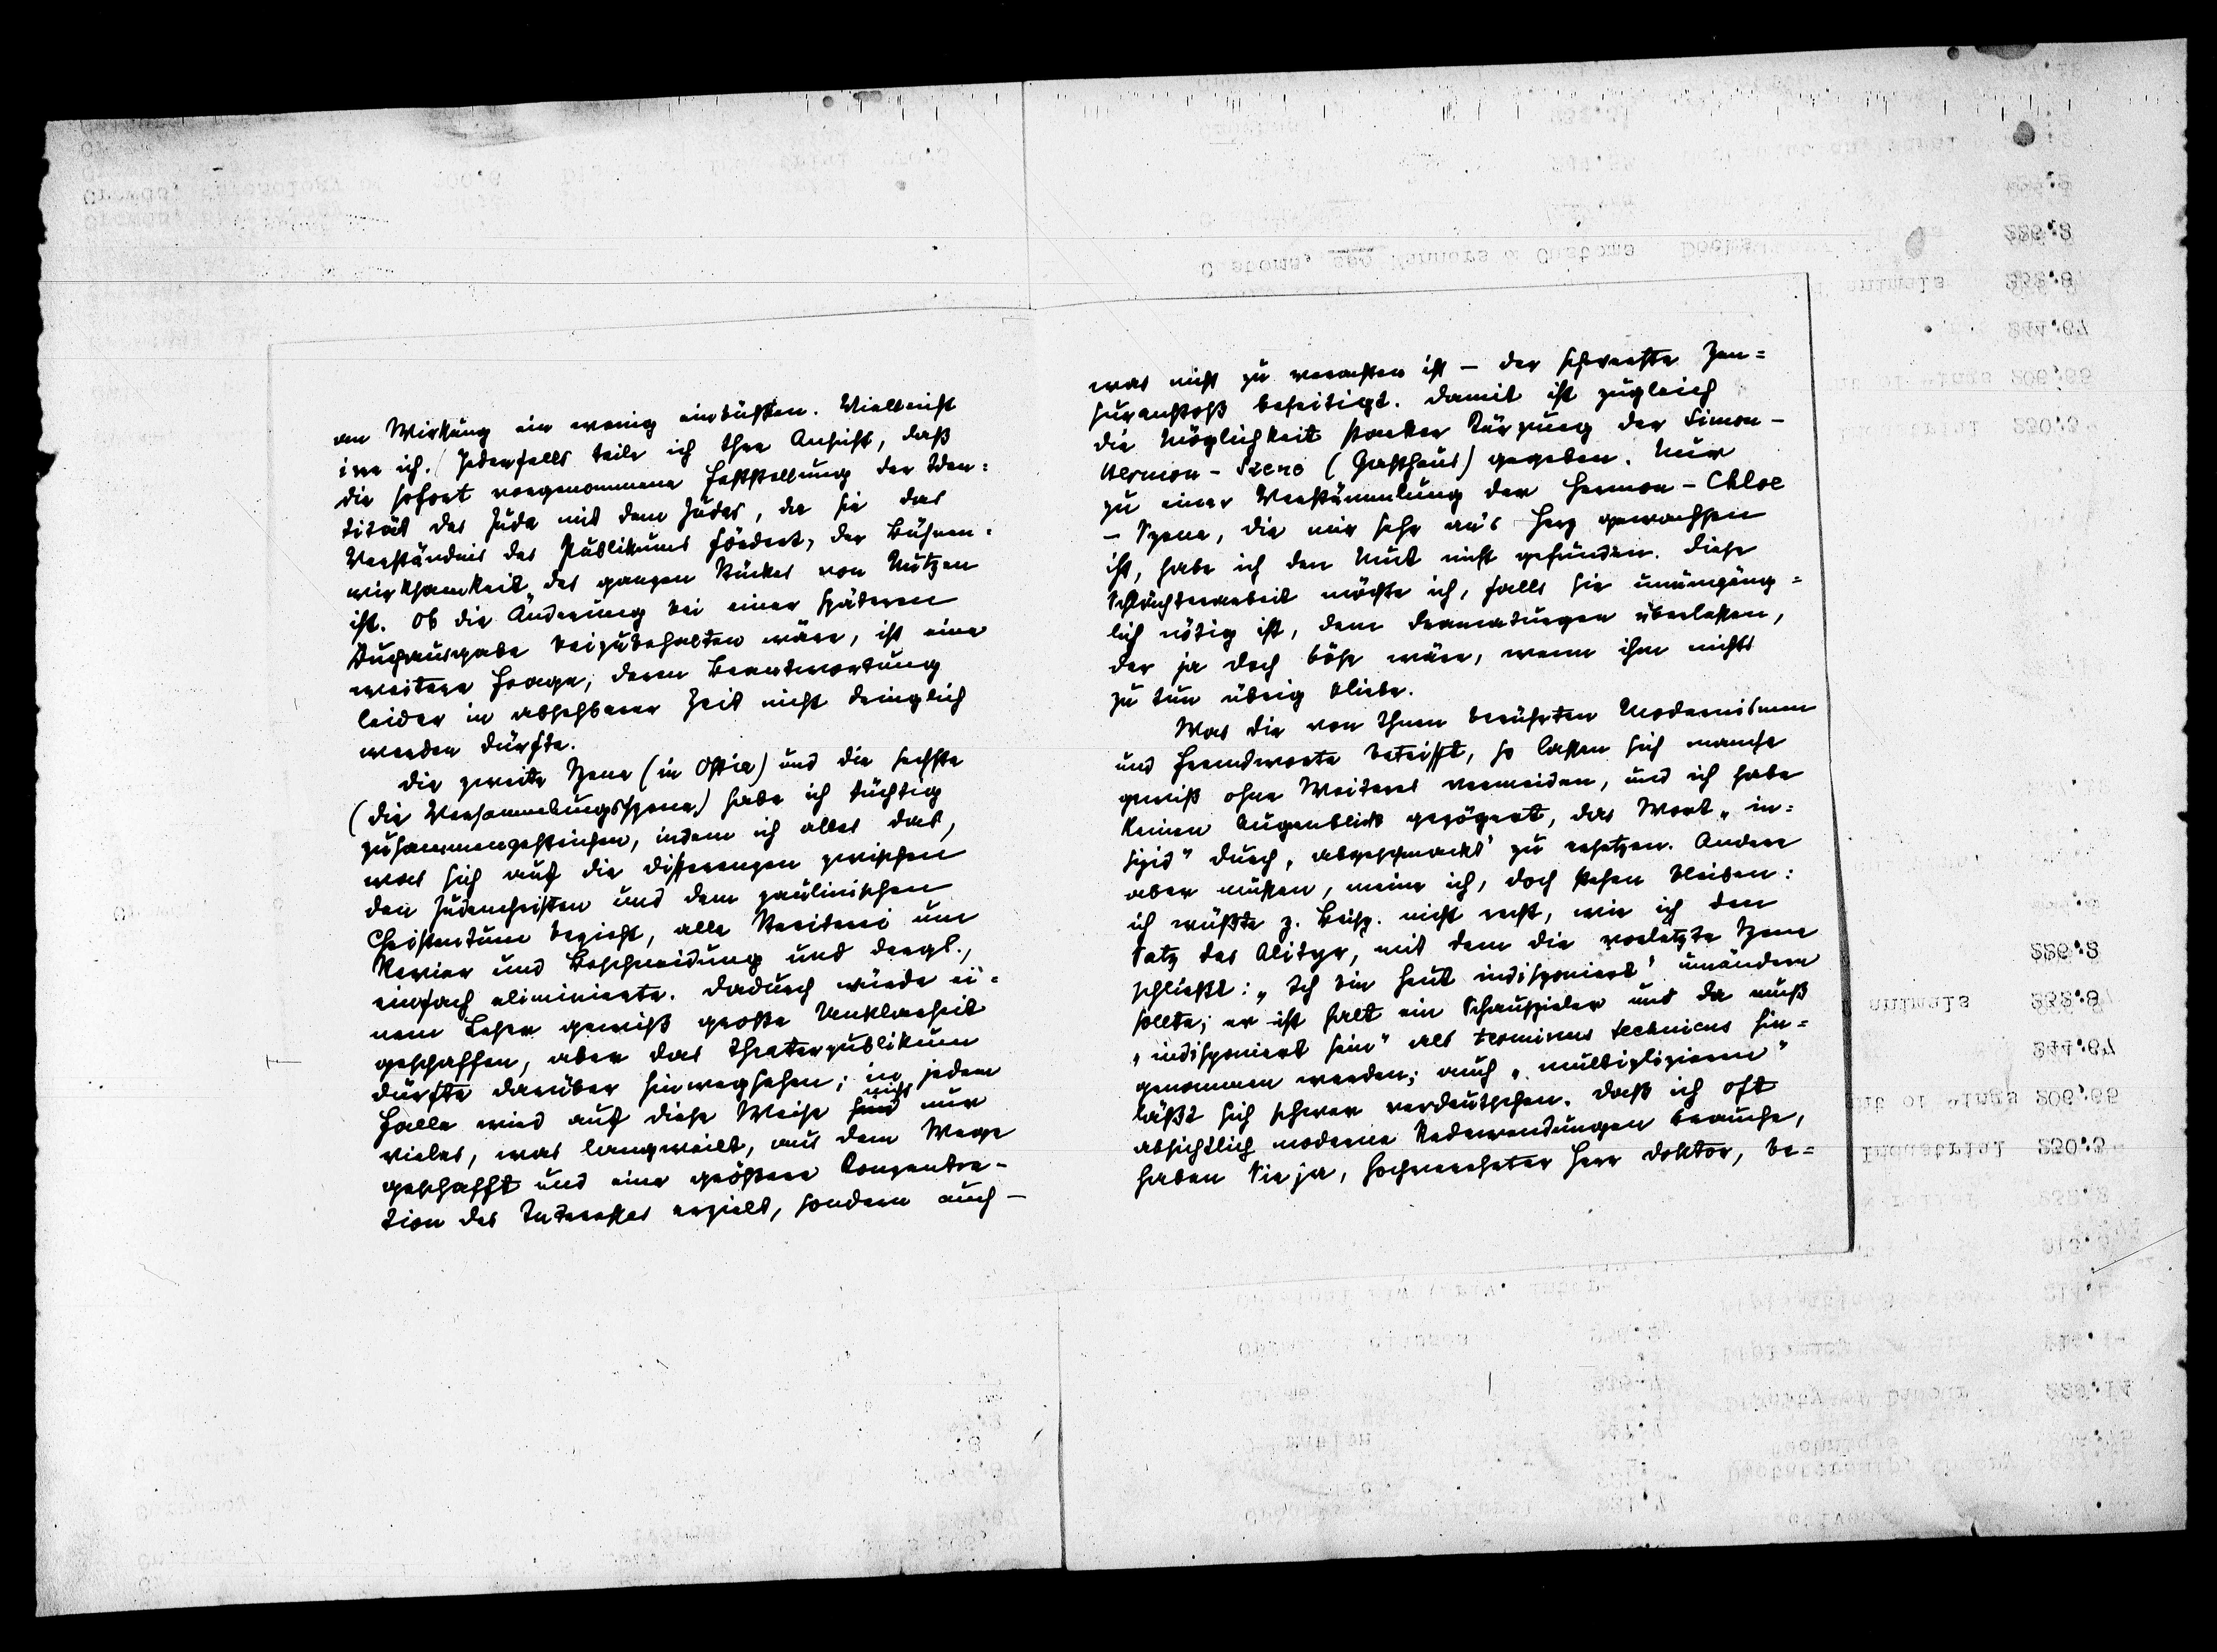 an Wirkung ein wenig einbüßen. Vielleicht
irre ich. Jedenfalls teile ich Ihre Ansicht, daß
die sofort vorgenommene Feststellung der Iden=
tität des Juda mit dem Judas, da sie das
Verständnis des Publikums fördert, der Bühnen=
wirksamkeit des ganzen Stückes von Nutzen
ist. Ob die Änderung bei einer späteren
Buchausgabe beizubehalten wäre, ist eine
weitere Frage, deren Beantwortung
leider in absehbarer Zeit nicht dringlich
werden dürfte.
Die zweite Szene (in Ostia) und die sechste
(die Versammlungsszene) habe ich tüchtig
zusammengestrichen, indem ich alles das,
was sich auf die Differenzen zwischen
den Judenchristen und dem paulinischen
Christentum bezieht, alle Streiterei um
Revier und Beschneidung und dergl.,
einfach eliminierte. Dadurch würde ei=
nem Leser gewiß große Unklarheit
geschaffen, aber das Theaterpublikum
dürfte darüber hinwegsehen; in jedem
Falle wird auf diese Weise nicht nur
vieles, was langweilt, aus dem Wege
geschafft und eine größere Konzentra-
tion des Interesses erzielt, sondern auch –
was nicht zu verachten ist – der schwerste Zen=
suranstoß beseitigt. Damit ist zugleich
die Möglichkeit starker Kürzung der Simon-
Hermon-Szene (Gasthaus) gegeben. Nur
zu einer Verstümmlung der Hermon-Chloe
- Szene, die mir sehr an's Herz gewachsen
ist, habe ich den Mut nicht gefunden. Diese
Schlächterarbeit möchte ich, falls sie unumgäng=
lich nötig ist, dem Dramaturgen überlassen,
der ja doch böse wäre, wenn ihm nichts
zu tun übrig bliebe.
Was die von Ihnen berührten Modernismen
und Fremdworte betrifft, so lassen sich manche
gewiß ohne Weiteres vermeiden, und ich habe
keinen Augenblick gezögert, das Wort „in=
sipid" durch „abgeschmackt" zu ersetzen. Andere
aber müssen, meine ich, doch stehen bleiben:
ich wüßte z. Beisp. nicht recht, wie ich den
Satz des Alityr, mit dem die vorletzte Szene
schließt: „Ich bin heut indisponiert" umändern
sollte; er ist halt ein Schauspieler und da muß
„indisponiert sein" als terminus technicus hin=
genommen werden; auch „multiplizieren"
läßt sich schwer verdeutschen. Daß ich oft
absichtlich moderne Redewendungen brauche,
haben Sie ja, hochverehrter Herr Doktor, be=